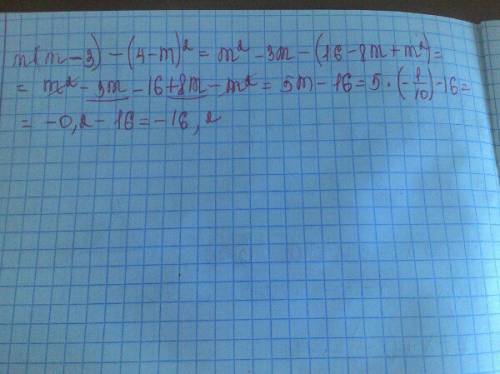 m(m-3)-(4-m)² = m² -3m-(16-8m+m²)=
= m² - 3m - 16+8m - m² = 5m - 16 = 5·(-1/10)-16=
= -0,2 - 16 = -16,2